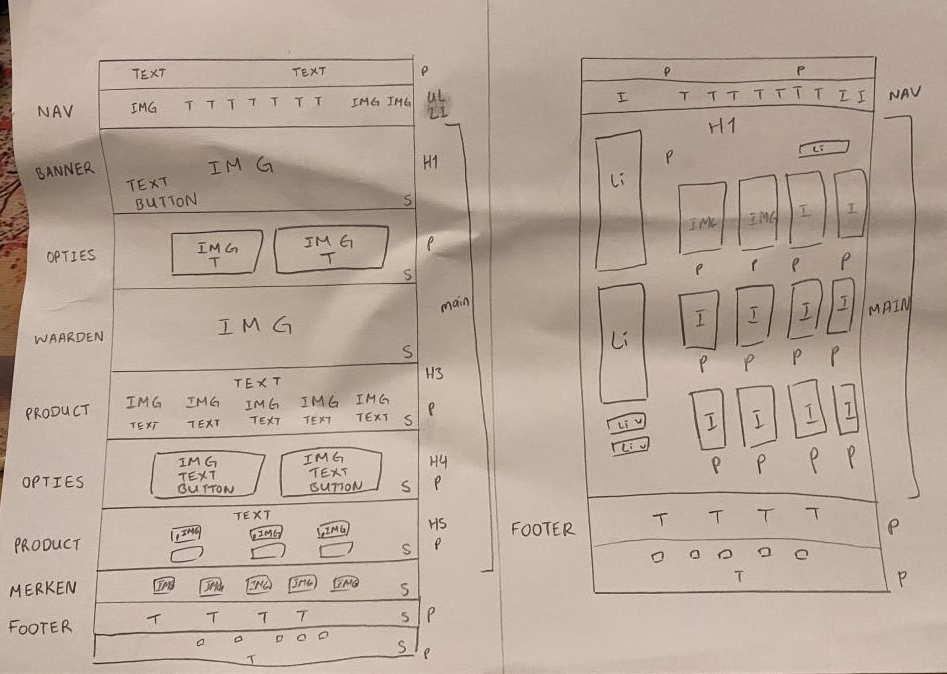 TEXT TEXT P
NAV IMG T T T T T T T IMG IMG UL
LI
BANNER IMG H1
TEXT
BUTTON S
OPTIES IMG IMG P
T T
S
main
WAARDEN IMG
S
TEXT H3
PRODUCT IMG IMG IMG IMG IMG P
TEXT TEXT TEXT TEXT TEXT S
OPTIES IMG IMG H4
TEXT TEXT P
BUTTON BUTTON S
TEXT H5
PRODUCT IMG IMG IMG P
S
MERKEN IMG IMG IMG IMG IMG S
FOOTER T T T T S P
S
T P
P P
I T T T T T T T I I NAV
H1
Li P Li
IMG IMG I I
P P P P
Li I I I I MAIN
P P P P
Li v
Li v I I I I
P P P P
FOOTER T T T T P
T P